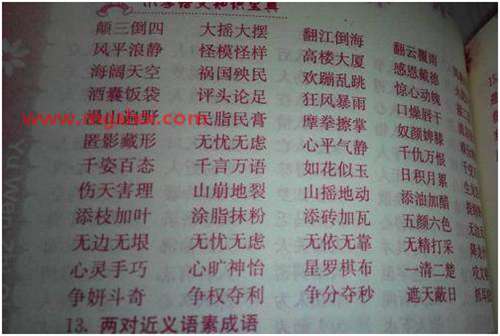 小学语文知识宝典
颠三倒四 大摇大摆 翻江倒海 翻云覆雨
风平浪静 怪模怪样 高楼大厦 感恩戴德
海阔天空 祸国殃民 欢蹦乱跳 惊心动魄
酒囊饭袋 评头论足 狂风暴雨 口燥唇干
民脂民膏 摩拳擦掌 奴颜婢膝
匿影藏形 无忧无虑 心平气静 千仇万恨
千姿百态 千言万语 如花似玉 日积月累
伤天害理 山崩地裂 山摇地动 添油加醋
添枝加叶 涂脂抹粉 添砖加瓦 五颜六色
无边无垠 无忧无虑 无依无靠 无精打采
心灵手巧 心旷神怡 星罗棋布 一清二楚
争妍斗奇 争权夺利 争分夺秒 遮天蔽日
13. 两对近义语素成语